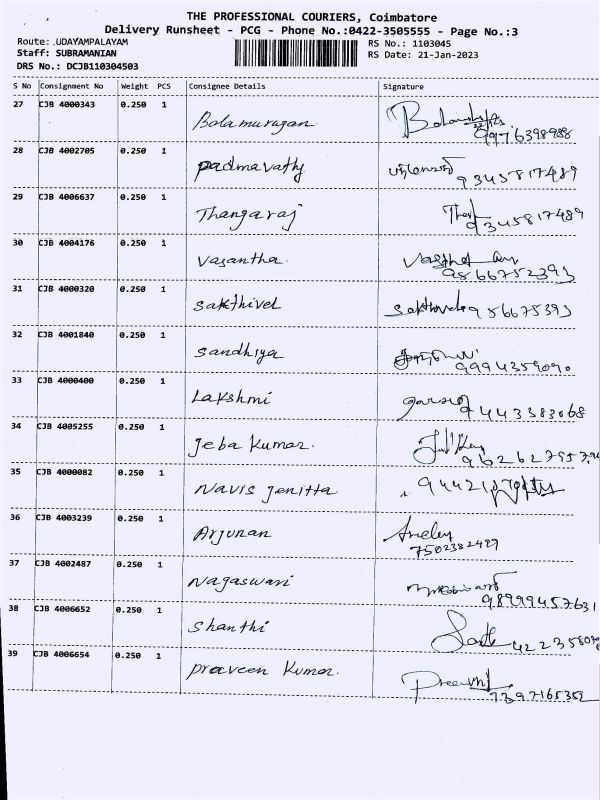 THE PROFESSIONAL COURIERS, Coimbatore
Delivery Runsheet - PCG - Phone No.:0422-3505555 - Page No.:3
Route: .UDAYAMPALAYAM
RS No.: 1103045
Staff: SUBRAMANIAN
RS Date: 21-Jan-2023
DRS No.: DCJB110304503
S No Consignment No Weight PCS Consignee Details Signature
27 CJB 4000343 0.250 1 Balamurugan
9976398988
28 CJB 4002705 0.250 1 padmavathy
9345817489
29 CJB 4006637 0.250 1 Thangaraj
9345817489
30 CJB 4004176 0.250 1 Vasantha.
31 CJB 4000320 0.250 1 sakthivel
32 CJB 4001840 0.250 1 sandhiya
9994359090
33 CJB 4000400 0.250 1 Lakshmi
34 CJB 4005255 0.250 1 Jeba Kumar.
35 CJB 4000082 0.250 1 Navis jenitta
36 CJB 4003239 0.250 1 Arjunan
7502382489
37 CJB 4002487 0.250 1 Nagaswari
38 CJB 4006652 0.250 1 Shanthi
39 CJB 4006654 0.250 1 praveen Kumar.
7397165352